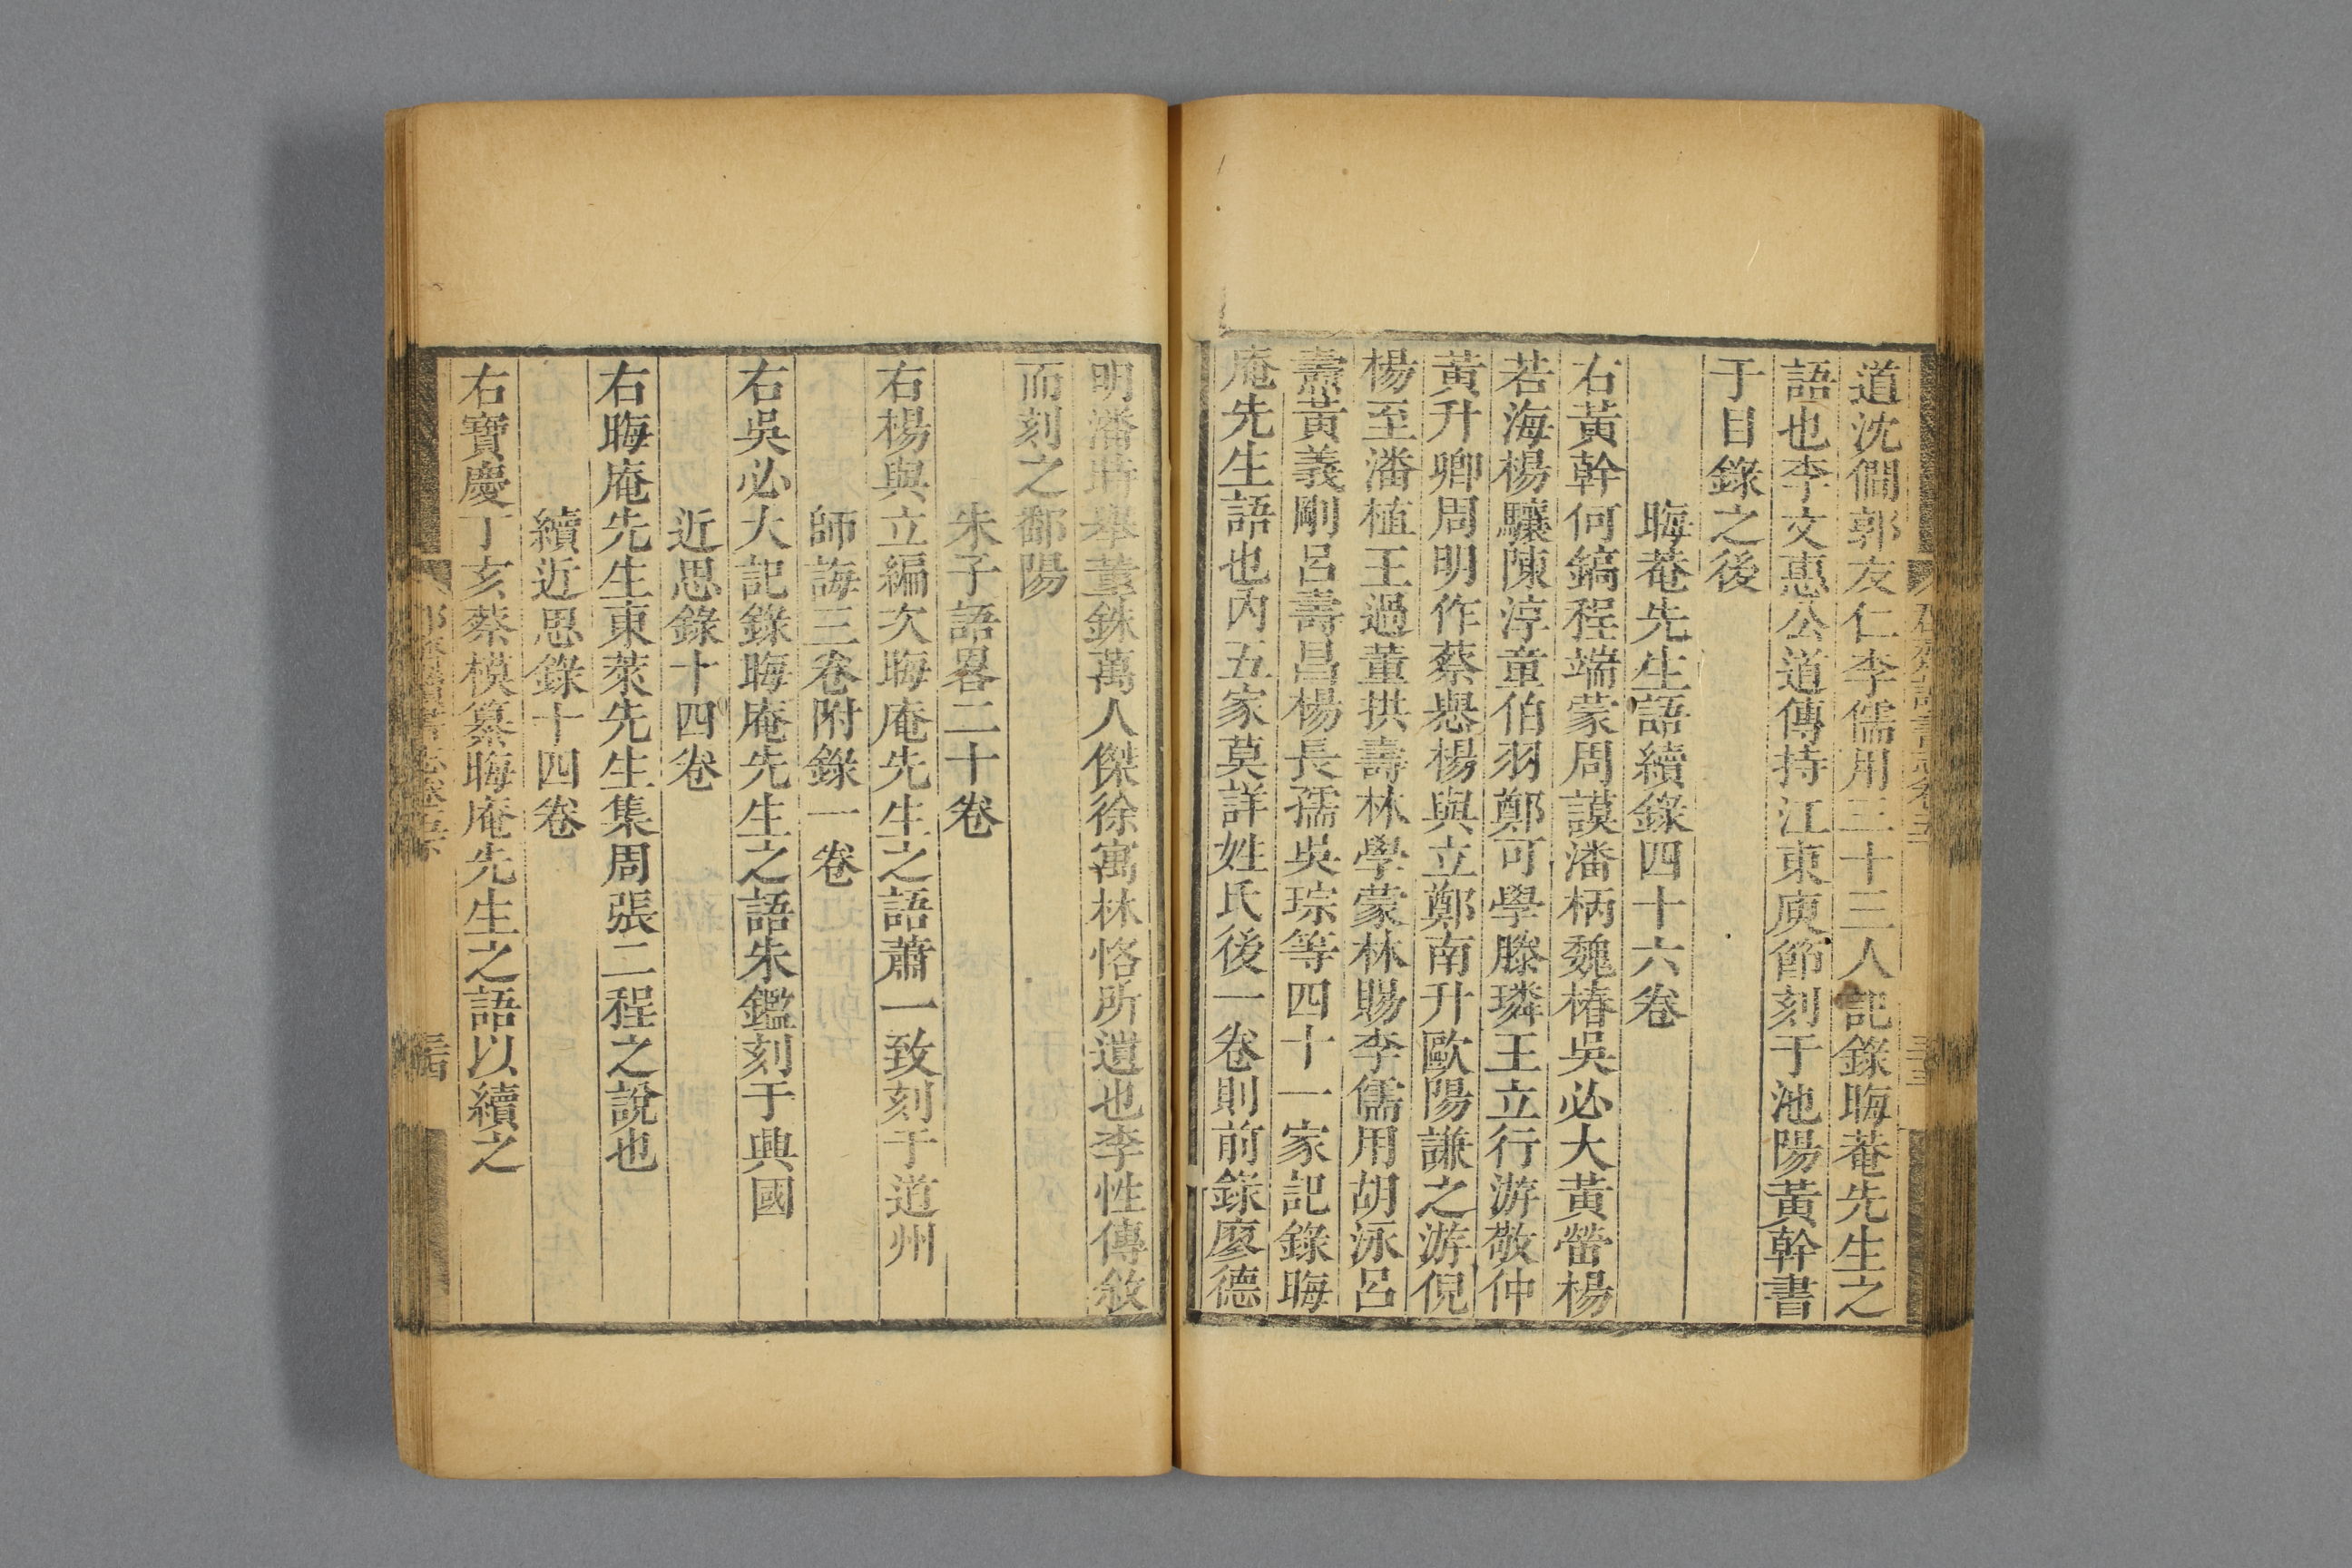 道沈僩郭友仁李儒用三十三人記錄晦菴先生之
語也李文惠公道傳持江東庾節刻于池陽黃幹書
于目錄之後
晦菴先生語續錄四十六卷
右黃幹何鎬程端蒙周謨潘柄魏椿吳必大黃㽦楊
若海楊驤陳淳童伯羽鄭可學滕璘王立行游敬仲
黃升卿周明作蔡㦛楊與立鄭南升歐陽謙之游倪
楊至潘植王過董拱壽林學蒙林賜李儒用胡泳呂
燾黃義剛呂壽昌楊長孺吳琮等四十一家記錄晦
庵先生語也內五家莫詳姓氏後一卷則前錄廖德
明潘時舉董銖萬人傑徐寓林恪所遺也李性傳敘
而刻之鄱陽
朱子語畧二十卷
右楊與立編次晦庵先生之語蕭一致刻于道州
師誨三卷附錄一卷
右吳必大記錄晦庵先生之語朱鑑刻于興國
近思錄十四卷
右晦庵先生東萊先生集周張二程之說也
續近思錄十四卷
右寶慶丁亥蔡模纂晦庵先生之語以續之